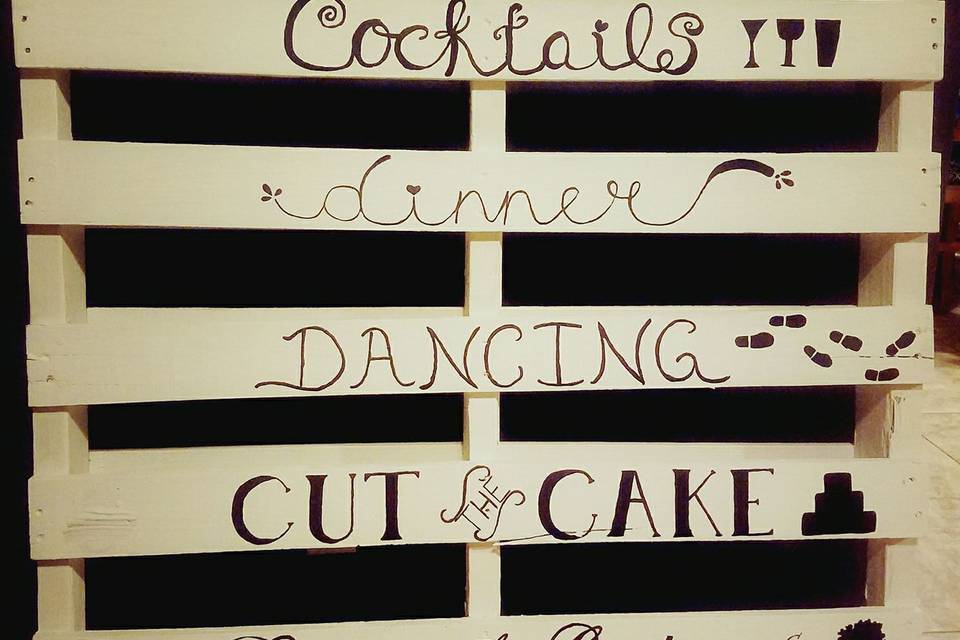 Cocktails
dinner
DANCING
CUT THE CAKE